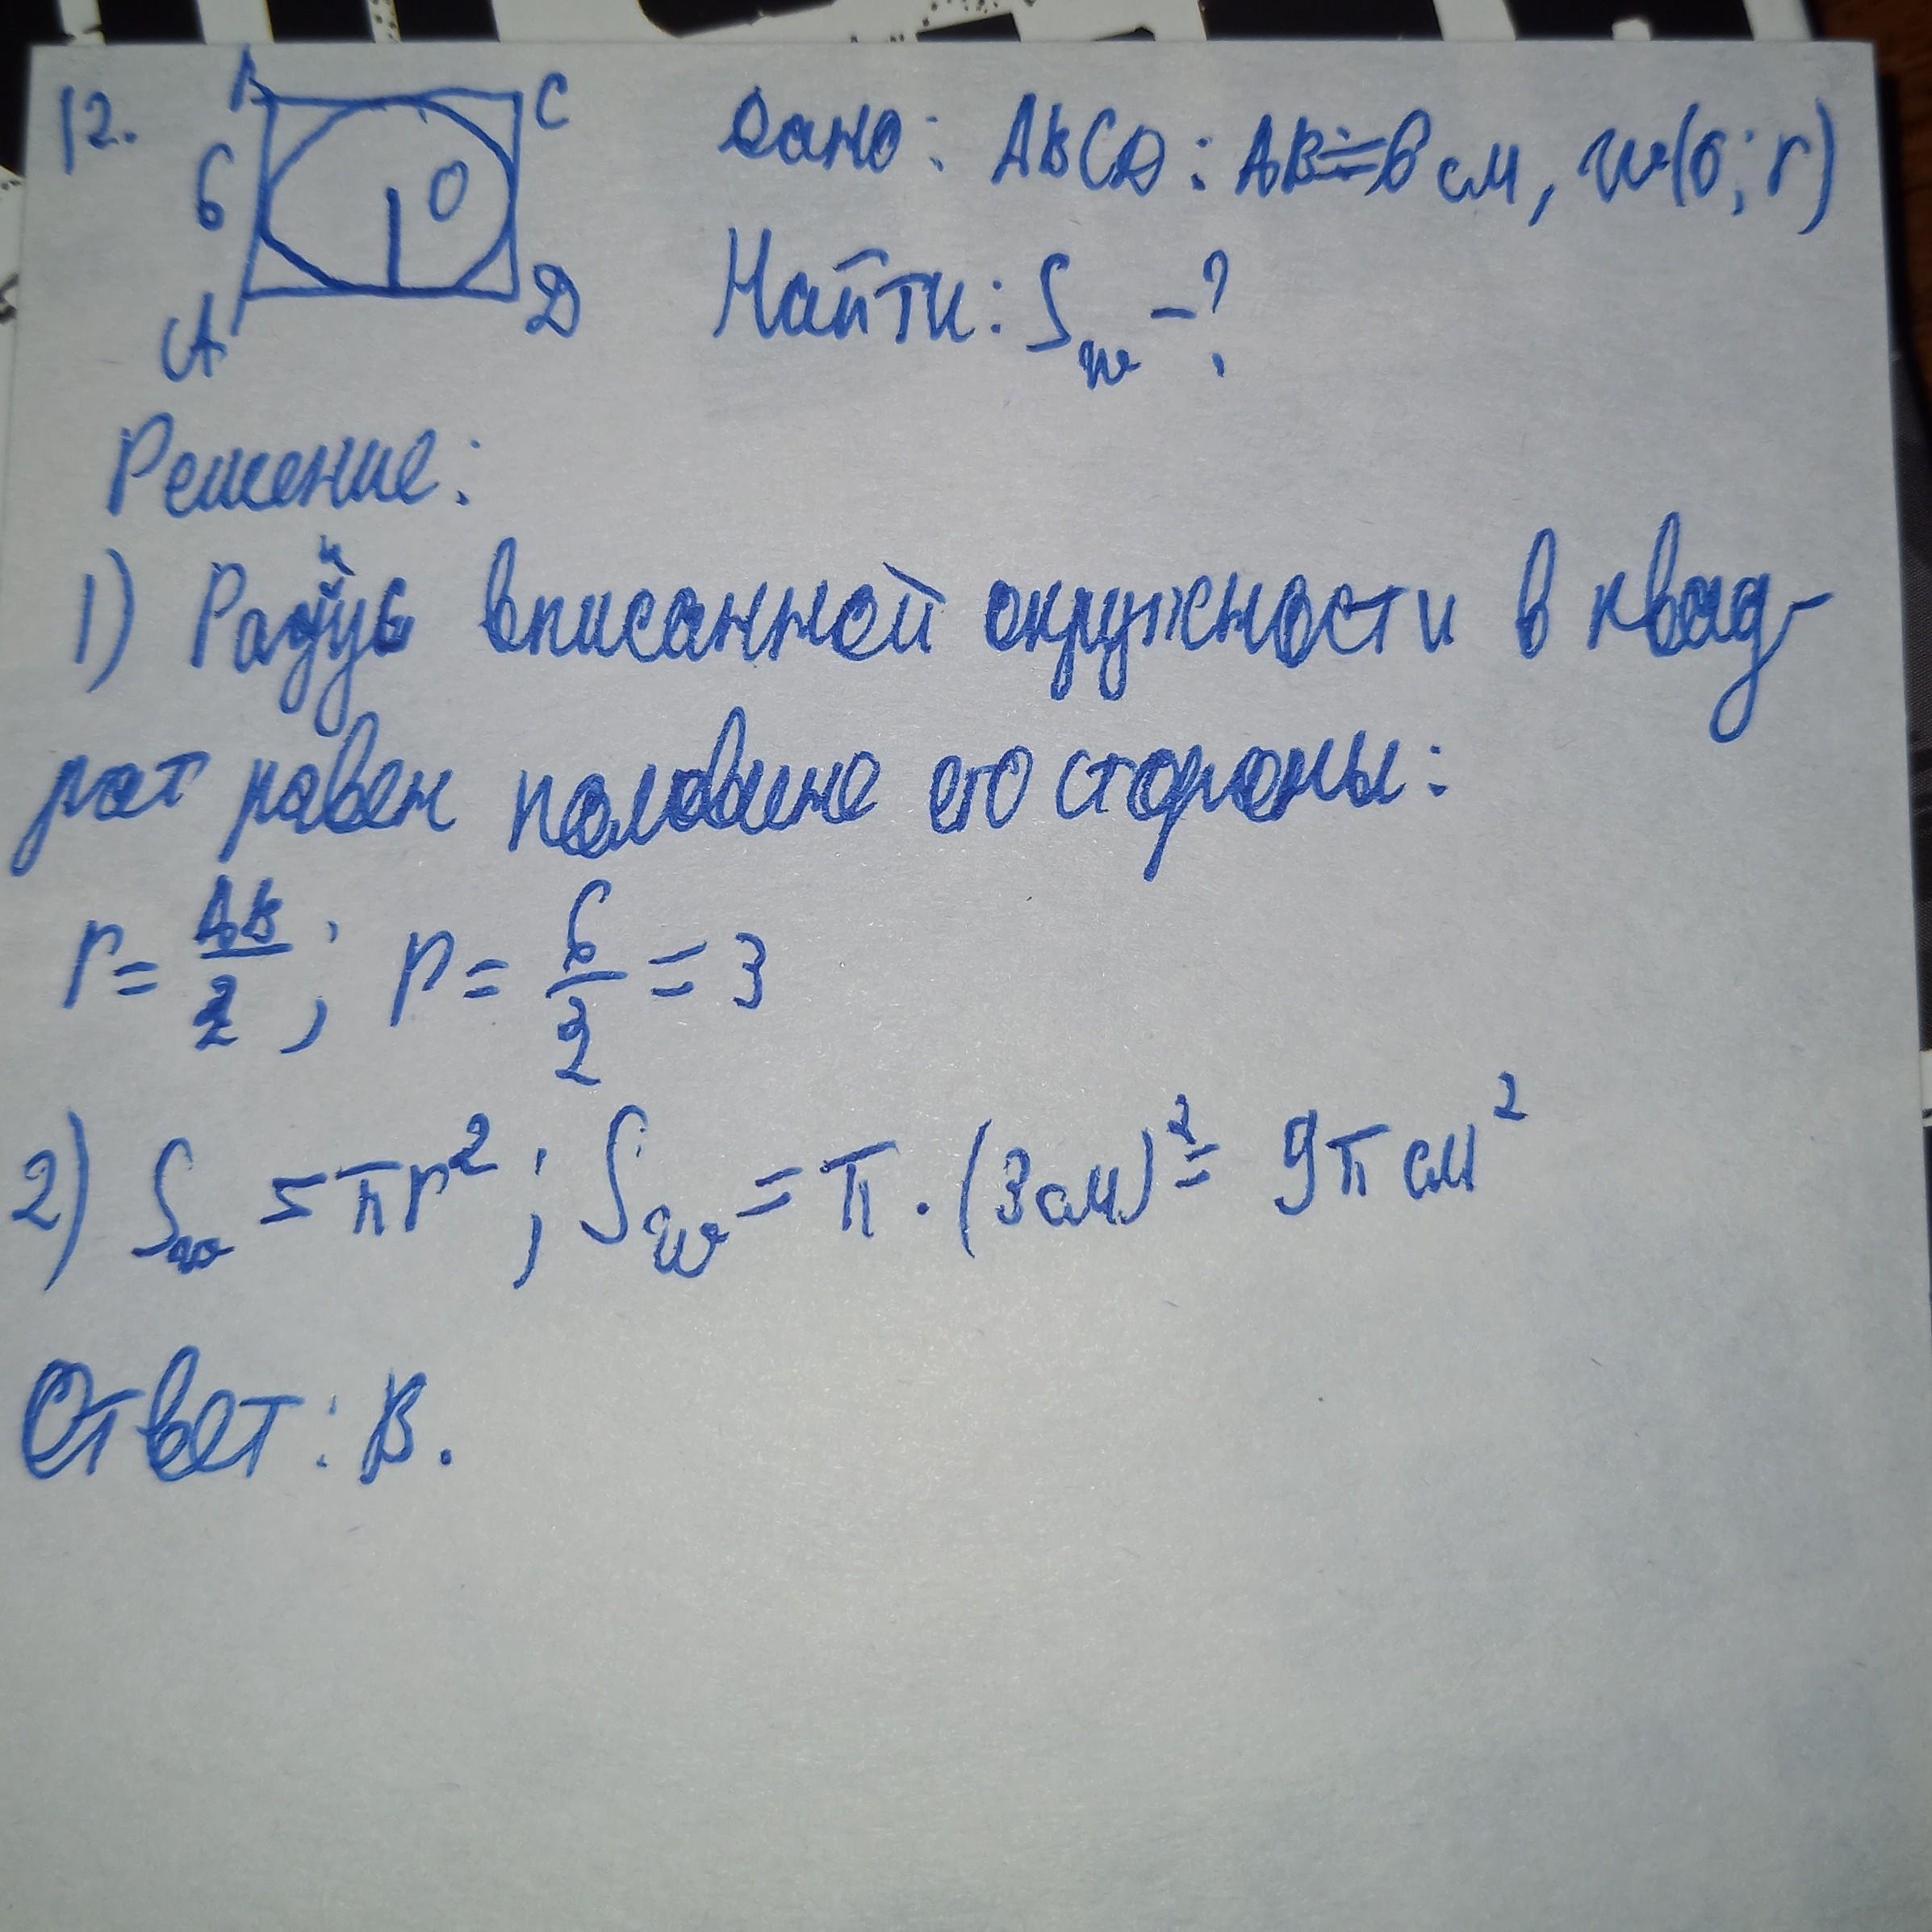 12.
B C
6 O
A D
Дано: ABCD: AB=6 см, w(o; r)
Найти: S_w - ?
Решение:
1) Радиус вписанной окружности в квад-
рат равен половине его стороны:
r = AB/2; r = 6/2 = 3
2) S_w = πr²; S_w = π · (3см)² = 9π см²
Ответ: В.